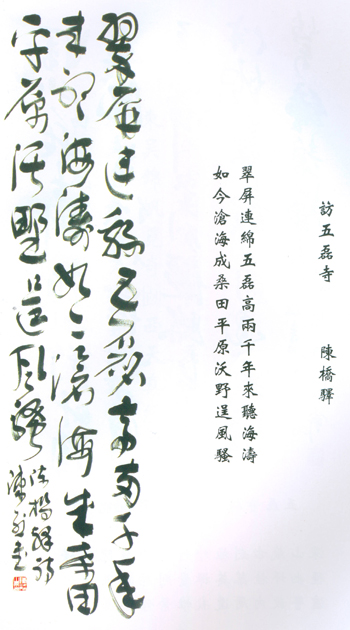 訪五磊寺 陳橋驛
翠屏連綿五磊高兩千年來聽海濤
如今滄海成桑田平原沃野逞風騷
翠屏連綿五磊高兩千年
來聽海濤如今滄海成桑田
平原沃野逞風騷
陳橋驛詩